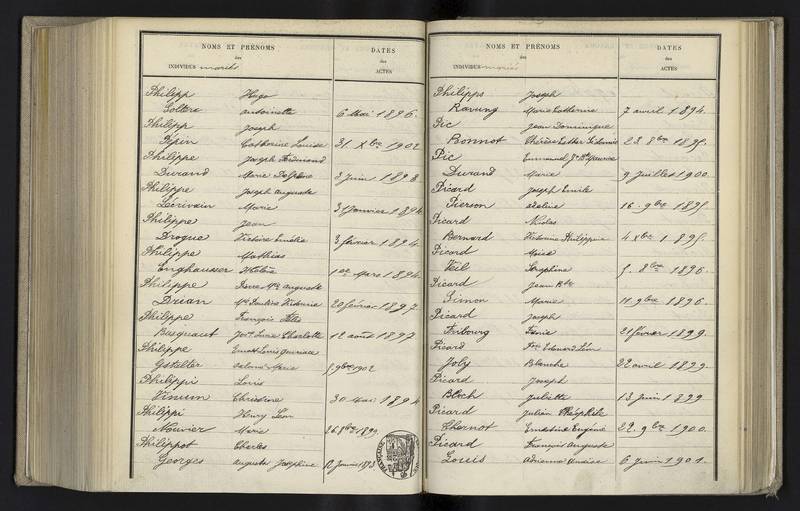 NOMS ET PRÉNOMS
des
INDIVIDUS mariés
DATES
des
ACTES
Philipp Hugo
Antoinette 6 Mai 1896.
Philipp Joseph
Pépin Catherine Louise 31. Xbre 1902
Philippe Joseph Ferdinand
Durand Marie Delphine 3 Juin 1898
Philippe Joseph Auguste
Lécrivain Marie 31 Janvier 1894
Philippe Jean
Drogue Victoire Amélie 3 février 1894.
Philippe Mathias
Enghausser Hélène 1er Mars 1894.
Philippe Pierre Auguste
Drian 20 février 1897
Philippe François
Basquant Charlotte 12 août 1897
Philippe Louis
Gstalter Marie 9bre 1902
Philippi Louis
Vinum Christine 30 Mai 1894
Philippi Henry Léon
Nouvier Marie 26 8bre 1899
Philippot Charles
Georges Auguste Joséphine
NOMS ET PRÉNOMS
des
INDIVIDUS mariés
DATES
des
ACTES
Philipps Joseph
Marie Catherine 7 avril 1894.
Pic Jean Dominique
Bonnot Thérèse Esther 23. 8bre 1895.
Pic Emmanuel
Durand Marie 9 Juillet 1900.
Picard Joseph Emile
Pierson Adeline 16. 9bre 1895.
Picard Nicolas
Bernard Victorine Philippine 4 Xbre 1895.
Picard Moïse
Veil Séraphine 5. 8bre 1896.
Picard Jean Bte
Simon Marie 11. 9bre 1896.
Picard Joseph
Fribourg Fanie 21 février 1899.
Picard Edouard Léon
Joly Blanche 22 avril 1899.
Picard Joseph
Bloch Juliette 13 Juin 1899
Picard Julien Théophile
Chernot Ernestine Eugénie 29. 9bre 1900.
Picard François Auguste
Louis Adrienne 6 Juin 1901.